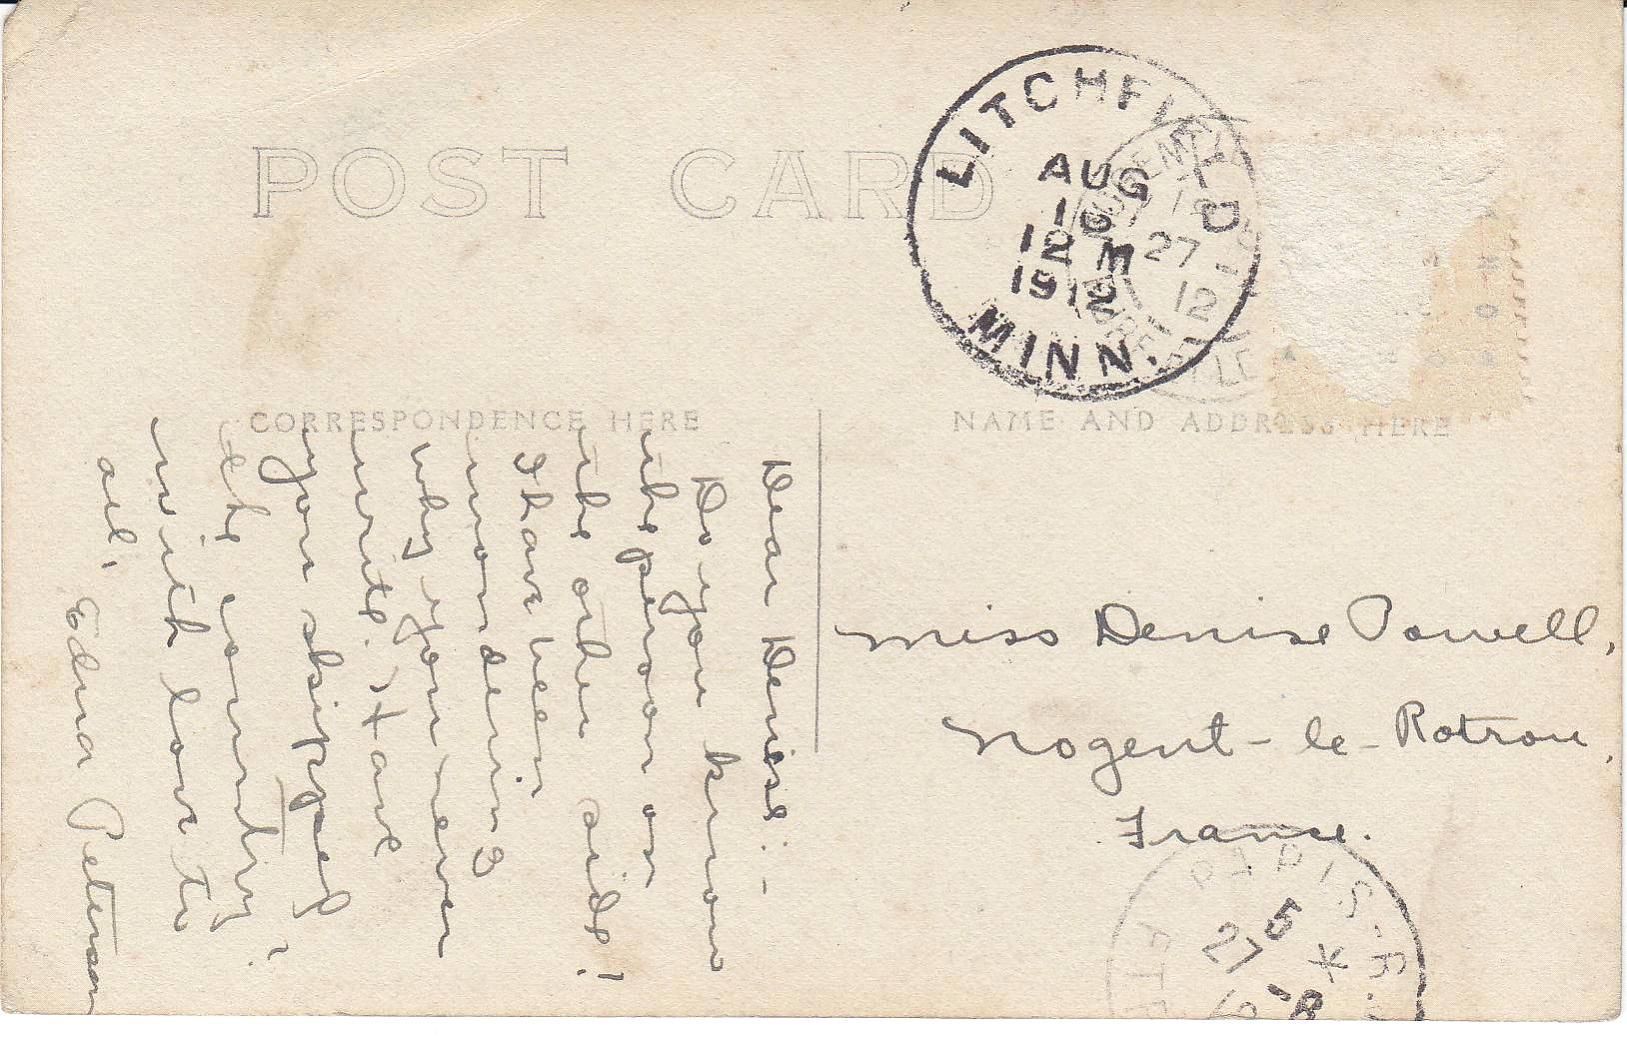 POST CARD
LITCHFIELD
AUG
12 M
1912
MINN.
27
12
CORRESPONDENCE HERE
NAME AND ADDRESS HERE
Dear Denise:-
Do you know
the person on
the other side!
I have been
wondering
why you never
write. Have
you skipped
the country?
with love to
all,
Edna Peterson
Miss Denise Powell,
Nogent-le-Rotrou,
France.
PARIS-R.
5 *
27-8